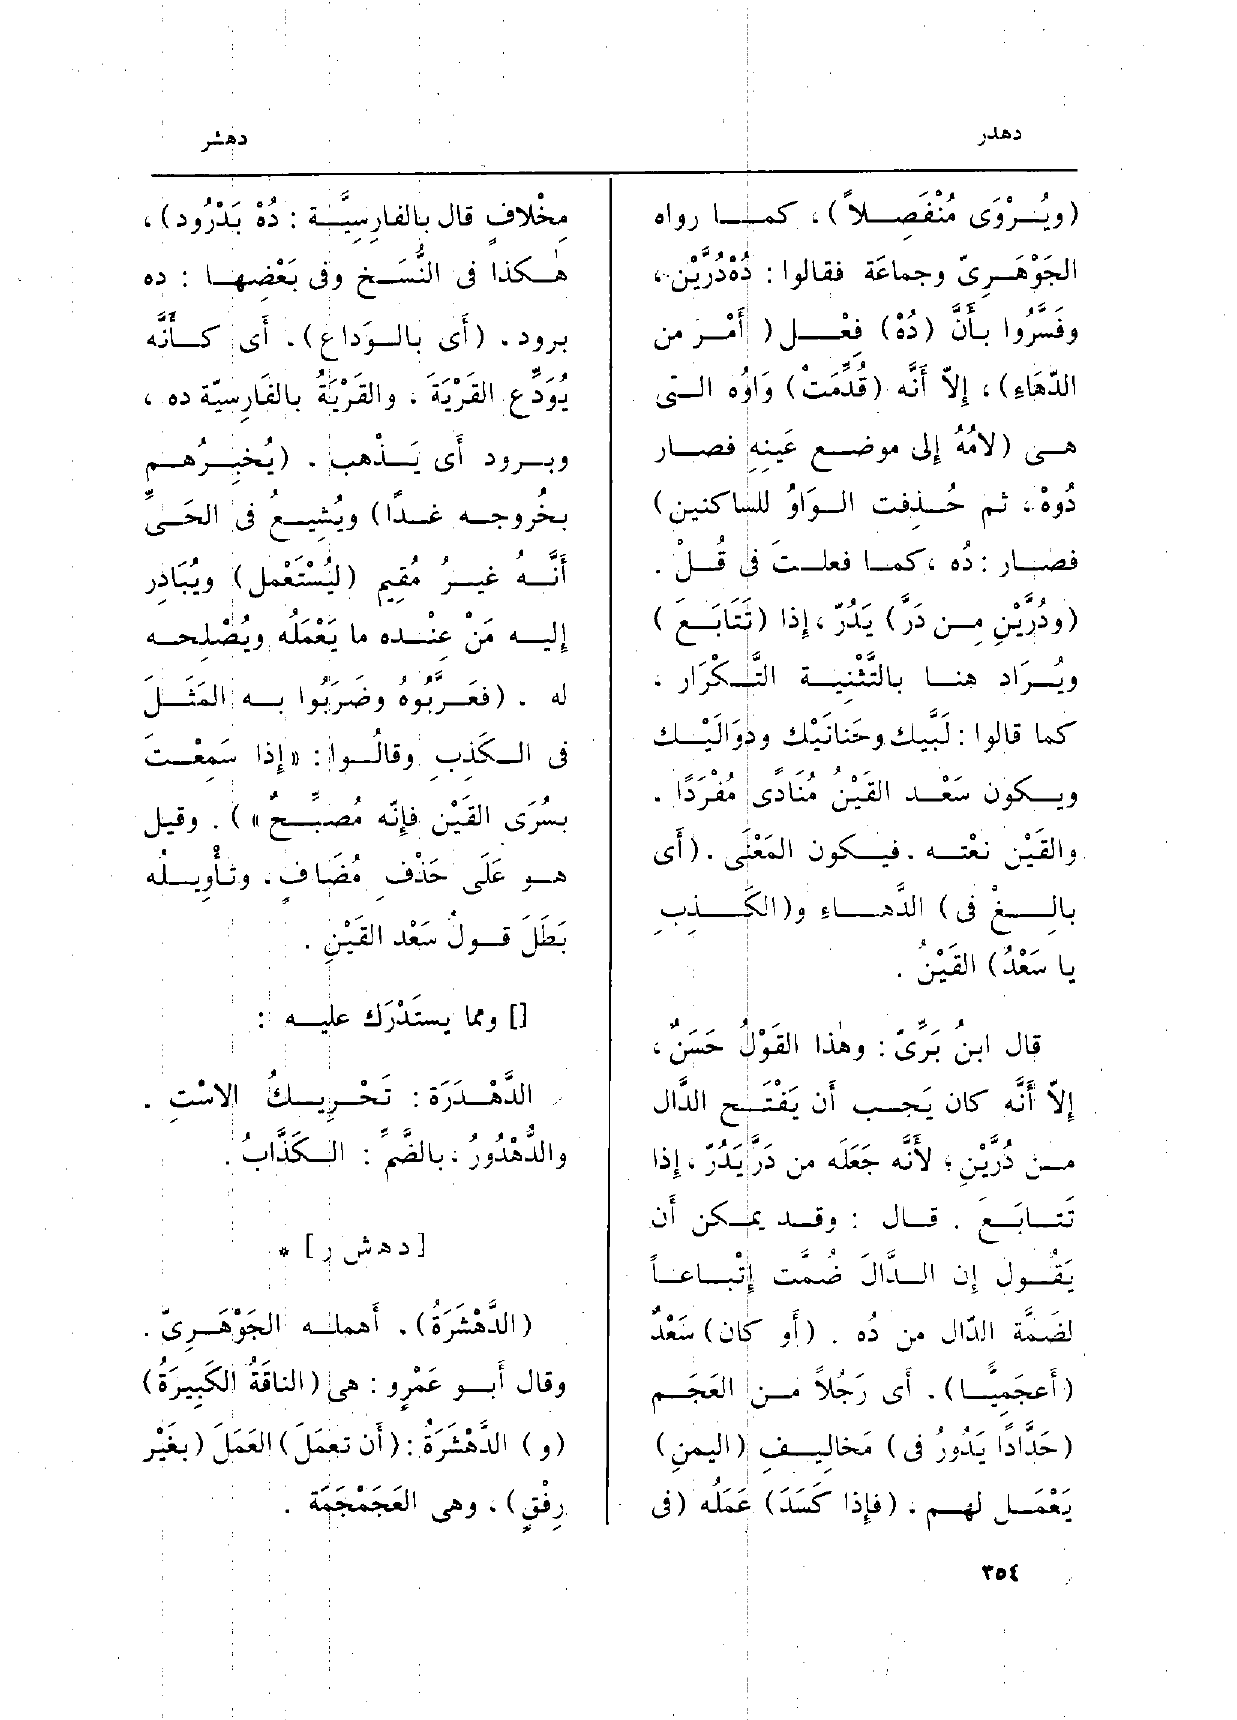 دهدر
دهشر
(ويُرْوَى مُنْفَصِلاً)، كما رواه
الجَوْهَرِىّ وجماعة فقالوا : دُهْ دُرَّيْنِ،
وفَسَّرُوا بأَنَّ (دُهْ) فعْل ( أَمْر من
الدَّهَاءِ)، إِلاّ أَنَّه (قُدِّمَتْ) وَاوُه التى
هى (لامُهُ إِلى موضع عَينِهِ فصار
دُوهْ، ثم حُذِفت الواوُ للساكنين)
فصار : دُه ،كما فعلتَ فى قُلْ .
(ودُرَّيْنِ مِن دَرَّ) يَدُرّ ،إذا (تَتَابَعَ )
ويُرَاد هنا بالتَّثْنِية التَّكْرَار ،
كما قالوا : لَبَّيك وحَنانَيْك ودوَالَيْك
ويكون سَعْد القَيْنُ مُنَادًى مُفْرَدًا .
والقَيْن نَعْته .فيكون المَعْنَى .(أَى
بالِغْ فى ) الدَّهاءِ و(الكَذِبِ
يا سَعْدُ) القَيْنُ .
قال ابنُ بَرِّىّ : وهٰذا القَوْلُ حَسَنٌ،
إِلاّ أَنَّه كان يَجب أَن يَفْتَح الدَّال
من دُرَّيْنِ؛ لأَنَّه جَعَله من دَرَّ يَدُرّ ،إذا
تَتابَعَ . قال : وقد يمكن أَن
يَقُول إن الدَّالَ ضُمَّت إتْباعاً
لضَمَّة الدّال من دُه . (أو كان) سَعْدٌ
(أَعجَمِيًّا) . أَى رَجُلاً من العَجَم
(حَدَّادًا يَدُورُ فى ) مَخالِيفِ (اليمنِ)
يَعْمَل لهم ، (فإِذا كَسَدَ) عَمَلُه (فى
مِخْلافٍ قال بالفارِسِيَّة : دُهْ بَدْرُود)،
هكذا فى النُّسَخ وفى بَعْضِها : ده
برود . (أَى بالوَداع) . أَى كأَنَّه
يُوَدِّع القَرْيَةَ ، والقَرْيَةُ بالفَارِسِيّة ده ،
وبرود أَى يَذْهب . (يُخبِرُهم
بخُروجه غدًا) ويُشِيعُ فى الحَىِّ
أَنَّه غيرُ مُقِيم (ليُسْتَعْمل) ويُبَادِر
إليه مَنْ عنْده ما يَعْمَلُه ويُصْلِحه
له . (فعَرَّبُوهُ وضرَبُوا به المَثَل
فى الكَذِب وقالُوا : «إذا سَمِعْت
بسُرَى القَيْنِ فإِنّه مُصَبِّحٌ») . وقيل
هو عَلَى حَذْف مُضَافٍ . وتأْويلُه
بَطَل قولُ سَعْد القَيْنِ .
[] ومما يستَدْرَك عليه :
الدَّهْدَرَة : تَحْرِيكُ الاسْتِ .
والدُّهْدُورُ ،بالضَّمِّ : الكَذَّابُ .
[دهش ر] *
(الدَّهْشَرَةُ) . أهمله الجَوْهَرِىّ .
وقال أَبو عَمْرٍو : هى (الناقَةُ الكَبِيرَةُ)
(و) الدَّهْشَرَةُ : (أَن تعمَلَ) العَمَلَ (بغَيْر
رِفْقٍ) ، وهى العَجَمْجَمَة .
٣٥٤